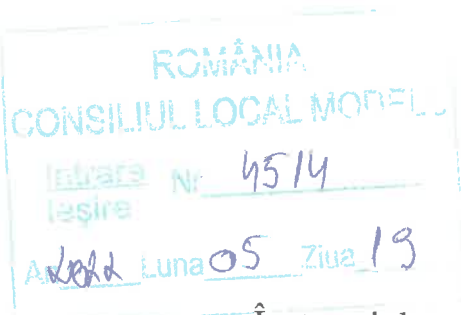 ROMÂNIA
CONSILIUL LOCAL MODELU
Intrare
Ieşire Nr 4514
An 2022 Luna 05 Ziua 19